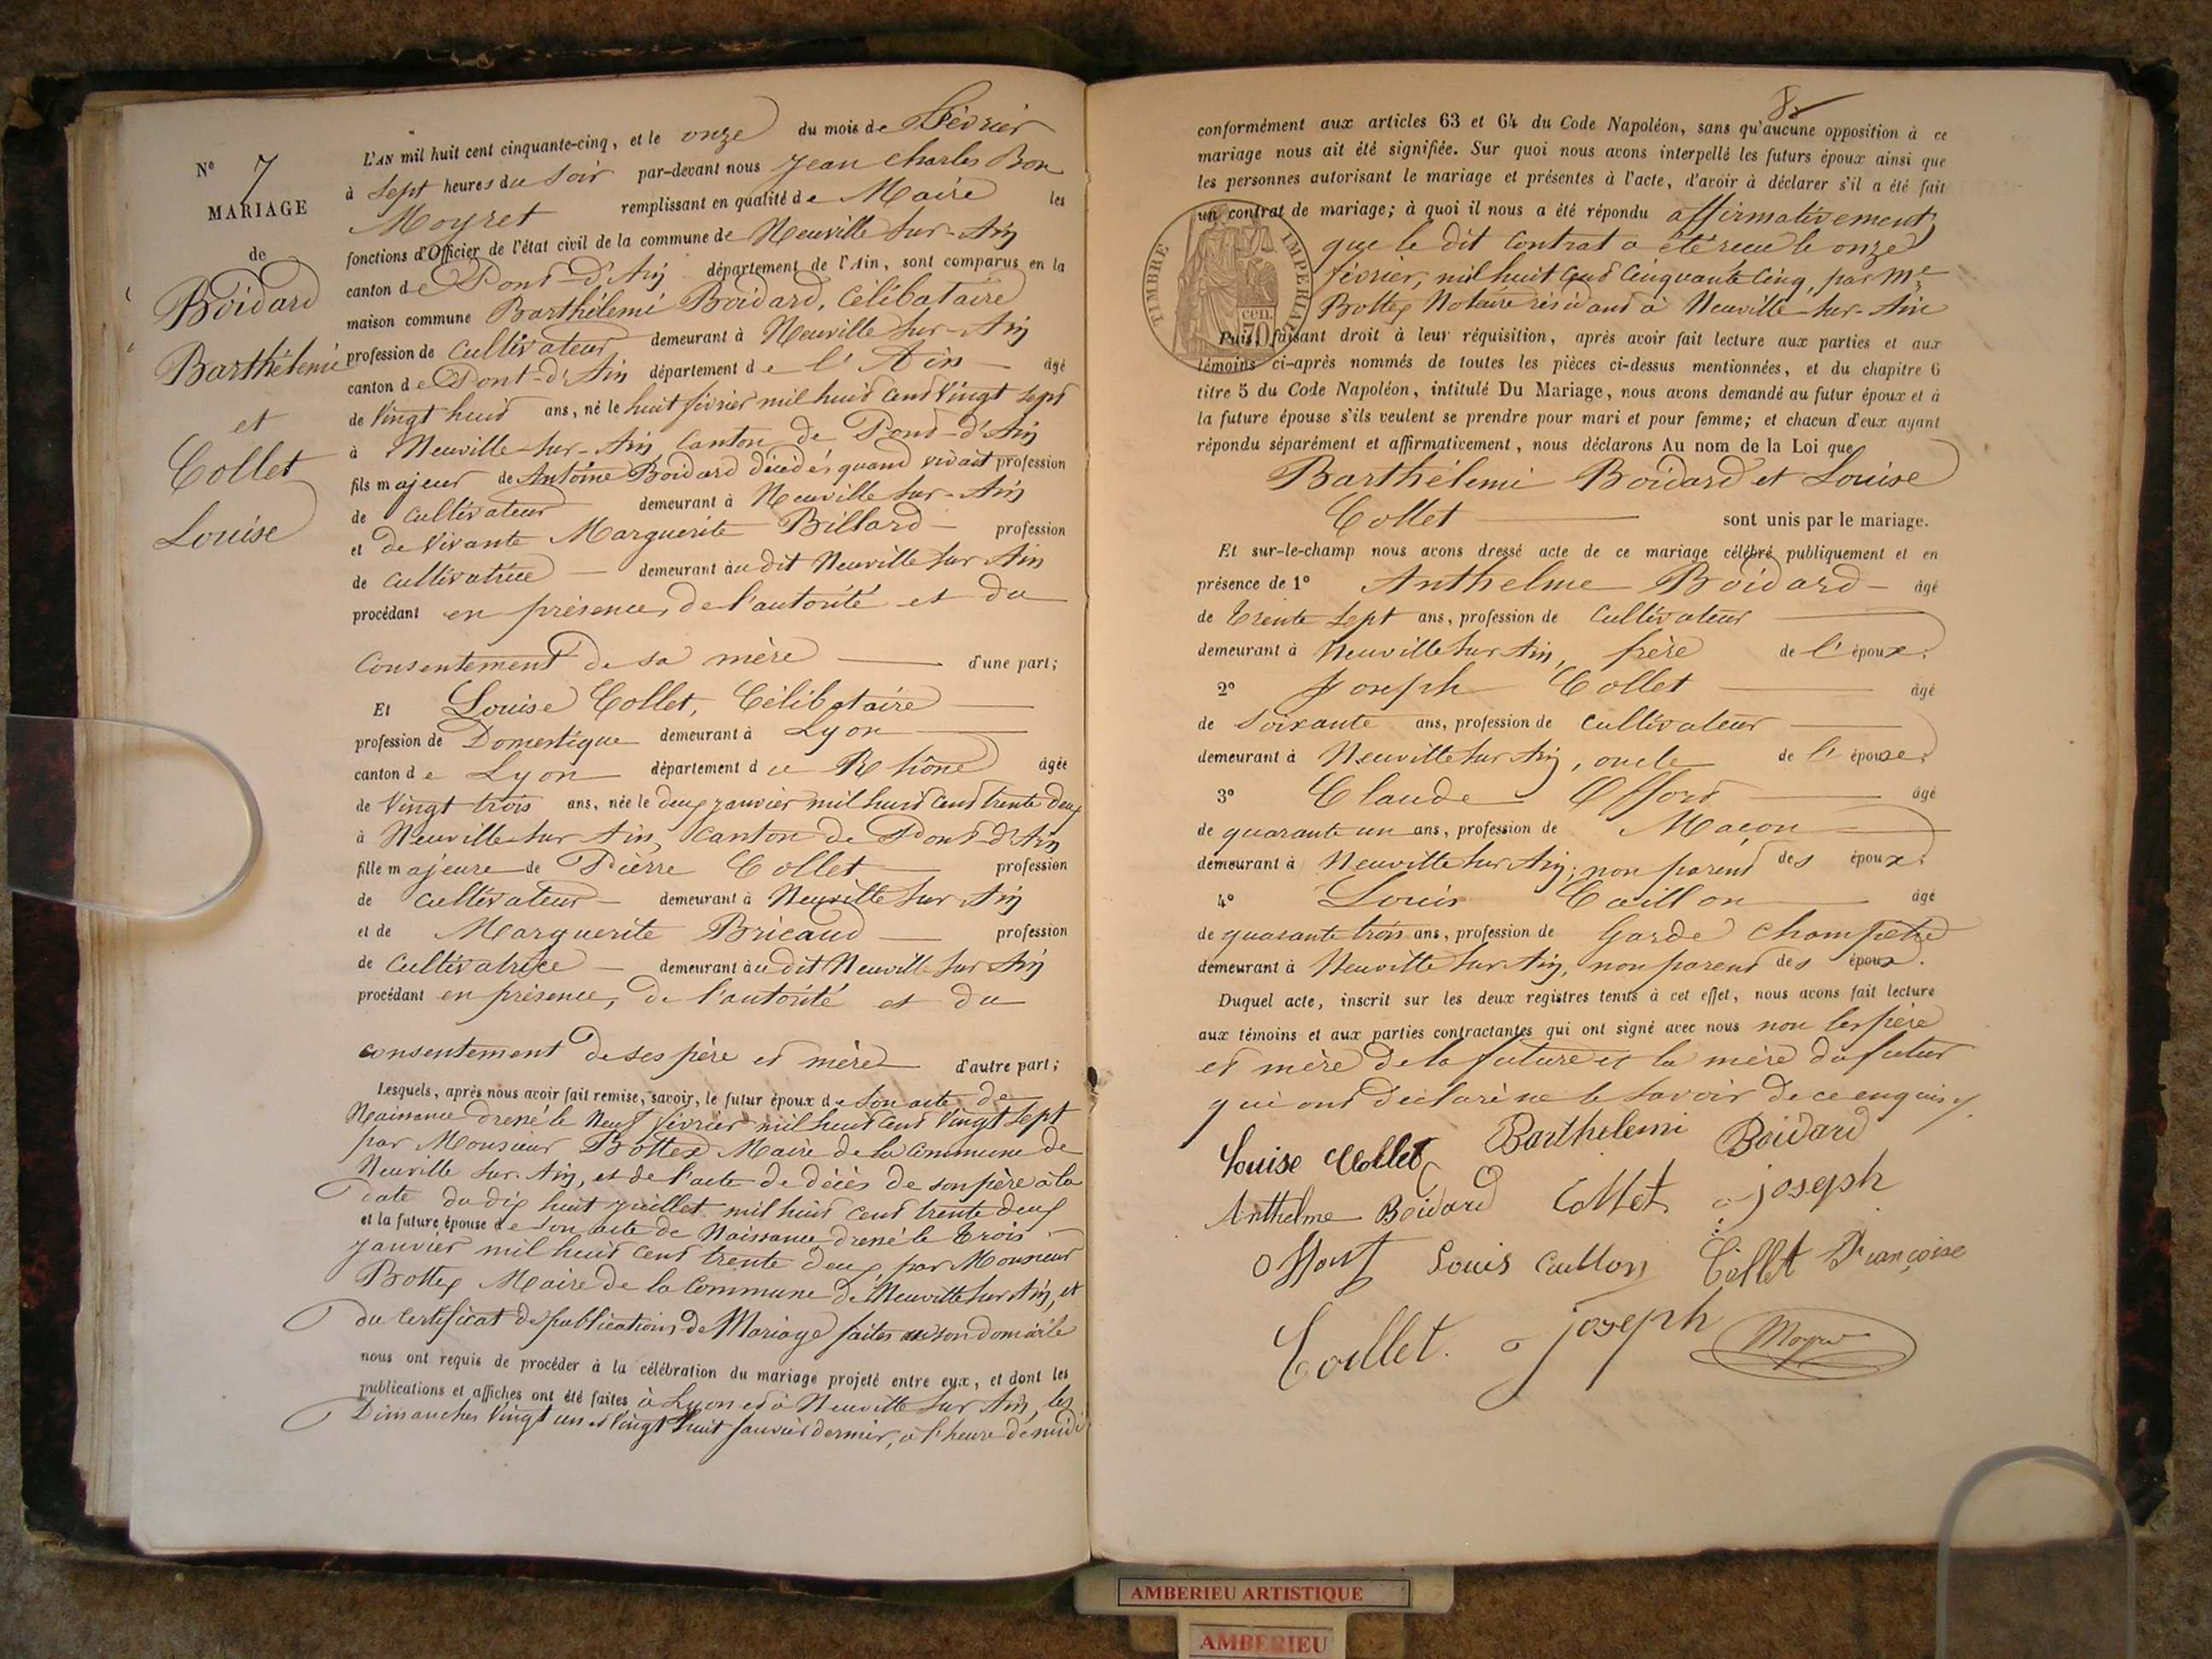 N° 7
MARIAGE
de
Boidard
Barthélemi
et
Collet
Louise
L'AN mil huit cent cinquante-cinq, et le onze du mois de Février
à Sept heures du Soir par-devant nous Jean Charles Bon
Moyret remplissant en qualité de Maire les
fonctions d'Officier de l'état civil de la commune de Neuville sur-Ain
canton de Pont-d'Ain département de l'Ain, sont comparus en la
maison commune Barthélemi Boidard, Célibataire
profession de Cultivateur demeurant à Neuville sur-Ain
canton de Pont-d'Ain département de l'Ain âgé
de Vingt huit ans, né le huit février mil huit cent Vingt sept
à Neuville-sur-Ain Canton de Pont-d'Ain
fils majeur de Antoine Boidard décédé, quand vivait profession
de Cultivateur demeurant à Neuville sur-Ain
et de Vivante Marguerite Billard profession
de Cultivatrice demeurant àu dit Neuville sur Ain
procédant en présence, de l'autorité et du
Consentement de sa mère d'une part;
Et Louise Collet, Célibataire
profession de Domestique demeurant à Lyon
canton de Lyon département du Rhône âgée
de Vingt trois ans, née le deux janvier mil huit cent trente deux
à Neuville sur Ain, Canton de Pont-d'Ain
fille majeure de Pierre Collet profession
de Cultivateur demeurant à Neuville sur Ain
et de Marguerite Bricaud profession
de Cultivatrice demeurant àu dit Neuville sur Ain
procédant en présence, de l'autorité et du
consentement de ses père et mère d'autre part;
Lesquels, après nous avoir fait remise, savoir, le futur époux de Son acte de
Naissance dressé le Neuf février mil huit cent Vingt sept
par Monsieur Bottex Maire de la Commune de
Neuville sur-Ain, et de l'acte de décès de son père à la
date du dix huit juillet mil huit cent trente deux
et la future épouse de son acte de Naissance dressé le Trois
janvier mil huit cent trente deux par Monsieur
Bottex Maire de la Commune de Neuville sur Ain, et
du Certificat de publications de Mariage faites au son domicile
nous ont requis de procéder à la célébration du mariage projeté entre eux, et dont les
publications et affiches ont été faites à Lyon et à Neuville sur Ain, les
Dimanches Vingt un et Vingt huit janvier dernier, à l'heure de midi
8
conformément aux articles 63 et 64 du Code Napoléon, sans qu'aucune opposition à ce
mariage nous ait été signifiée. Sur quoi nous avons interpellé les futurs époux ainsi que
les personnes autorisant le mariage et présentes à l'acte, d'avoir à déclarer s'il a été fait
un contrat de mariage; à quoi il nous a été répondu affirmativement,
que le dit Contrat a été reçu le onze
février, mil huit cent Cinquante Cinq, par Me
Bottex Notaire résidant à Neuville-sur-Ain
TIMBRE IMPERIAL
70 cen.
Puis, faisant droit à leur réquisition, après avoir fait lecture aux parties et aux
témoins ci-après nommés de toutes les pièces ci-dessus mentionnées, et du chapitre 6
titre 5 du Code Napoléon, intitulé Du Mariage, nous avons demandé au futur époux et à
la future épouse s'ils veulent se prendre pour mari et pour femme; et chacun d'eux ayant
répondu séparément et affirmativement, nous déclarons Au nom de la Loi que
Barthélemi Boidard et Louise
Collet sont unis par le mariage.
Et sur-le-champ nous avons dressé acte de ce mariage célébré publiquement et en
présence de 1° Anthelme Boidard âgé
de Trente Sept ans, profession de Cultivateur
demeurant à Neuville sur Ain, frère de l'époux.
2° Joseph Collet âgé
de Soixante ans, profession de Cultivateur
demeurant à Neuville sur Ain, oncle de l'épouse.
3° Claude Offort âgé
de quarante un ans, profession de Maçon
demeurant à Neuville sur Ain, non parent des époux.
4° Louis Caillon âgé
de quarante trois ans, profession de Garde Champêtre
demeurant à Neuville sur Ain, non parent des époux.
Duquel acte, inscrit sur les deux registres tenus à cet effet, nous avons fait lecture
aux témoins et aux parties contractantes qui ont signé avec nous non les père
et mère de la future et la mère du futur
qui ont déclaré ne le Savoir de ce enquis
Louise Collet Barthelemi Boidard
Anthelme Boidard Collet joseph
Offort Louis Caillon Collet Françoise
Collet joseph Moyret
AMBERIEU ARTISTIQUE
AMBERIEU